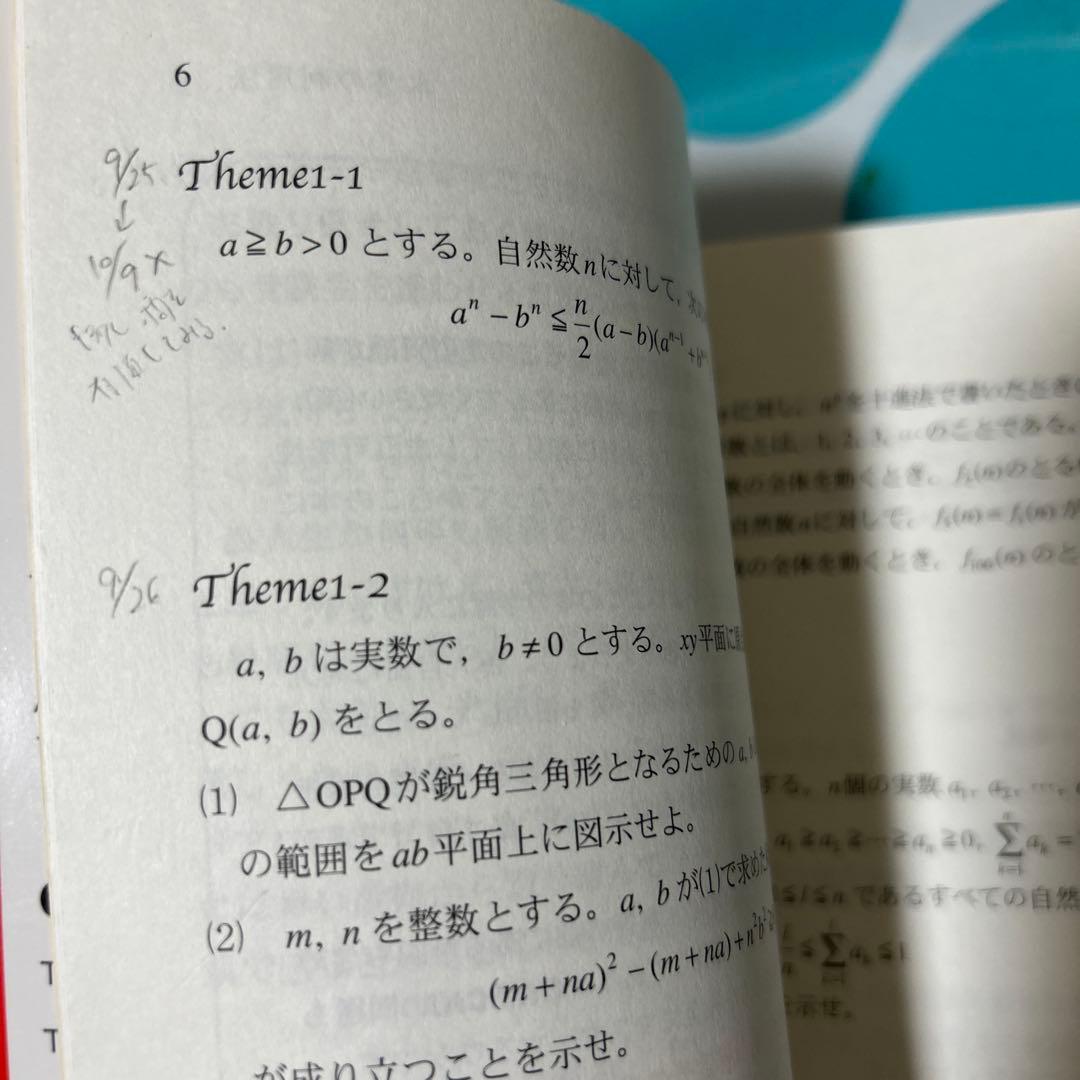 6
9/25
↓
10/9 ×
Theme1-1
a≧b>0 とする。自然数nに対して,
aⁿ − bⁿ ≦ n/2 (a−b)(aⁿ⁻¹ + b
9/26
Theme1-2
a, b は実数で, b≠0 とする。xy平面に
Q(a, b) をとる。
(1) △OPQが鋭角三角形となるための a, b
の範囲を ab平面上に図示せよ。
(2) m, n を整数とする。a, b が(1)で求めた
(m+na)² − (m+na) + n²b²
が成り立つことを示せ。
に対し, を十進法で書いたとき
数とは, 1, 2, 3, … のことである。
数の全体を動くとき,
自然数nに対して,
数の全体を動くとき, f₁₀₀(n) のと
する。n個の実数 a₁, a₂, …,
a₁ ≧ a₂ ≧ … ≧ aₙ ≧ 0,
≦ l ≦ n であるすべての自然
示せ。
T
T